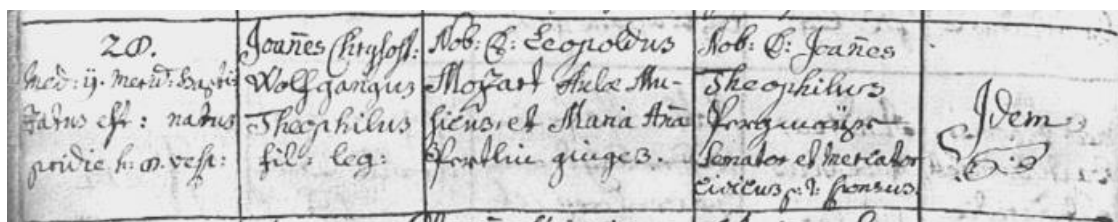 28.
med: ij. merid: bapti
zatus est: natus
pridie h: 8. vesp:
Joañes Chrysost:
Wolfgangus
Theophilus
fil: leg:
Nob: D: Leopoldus
Mozart Aulæ Mu-
sicus, et Maria Aña
Pertlin giuges.
Nob: D: Joañes
Theophilus
Pergmaÿr
Senator et Mercator
civicus p: t: sponsus
Idem